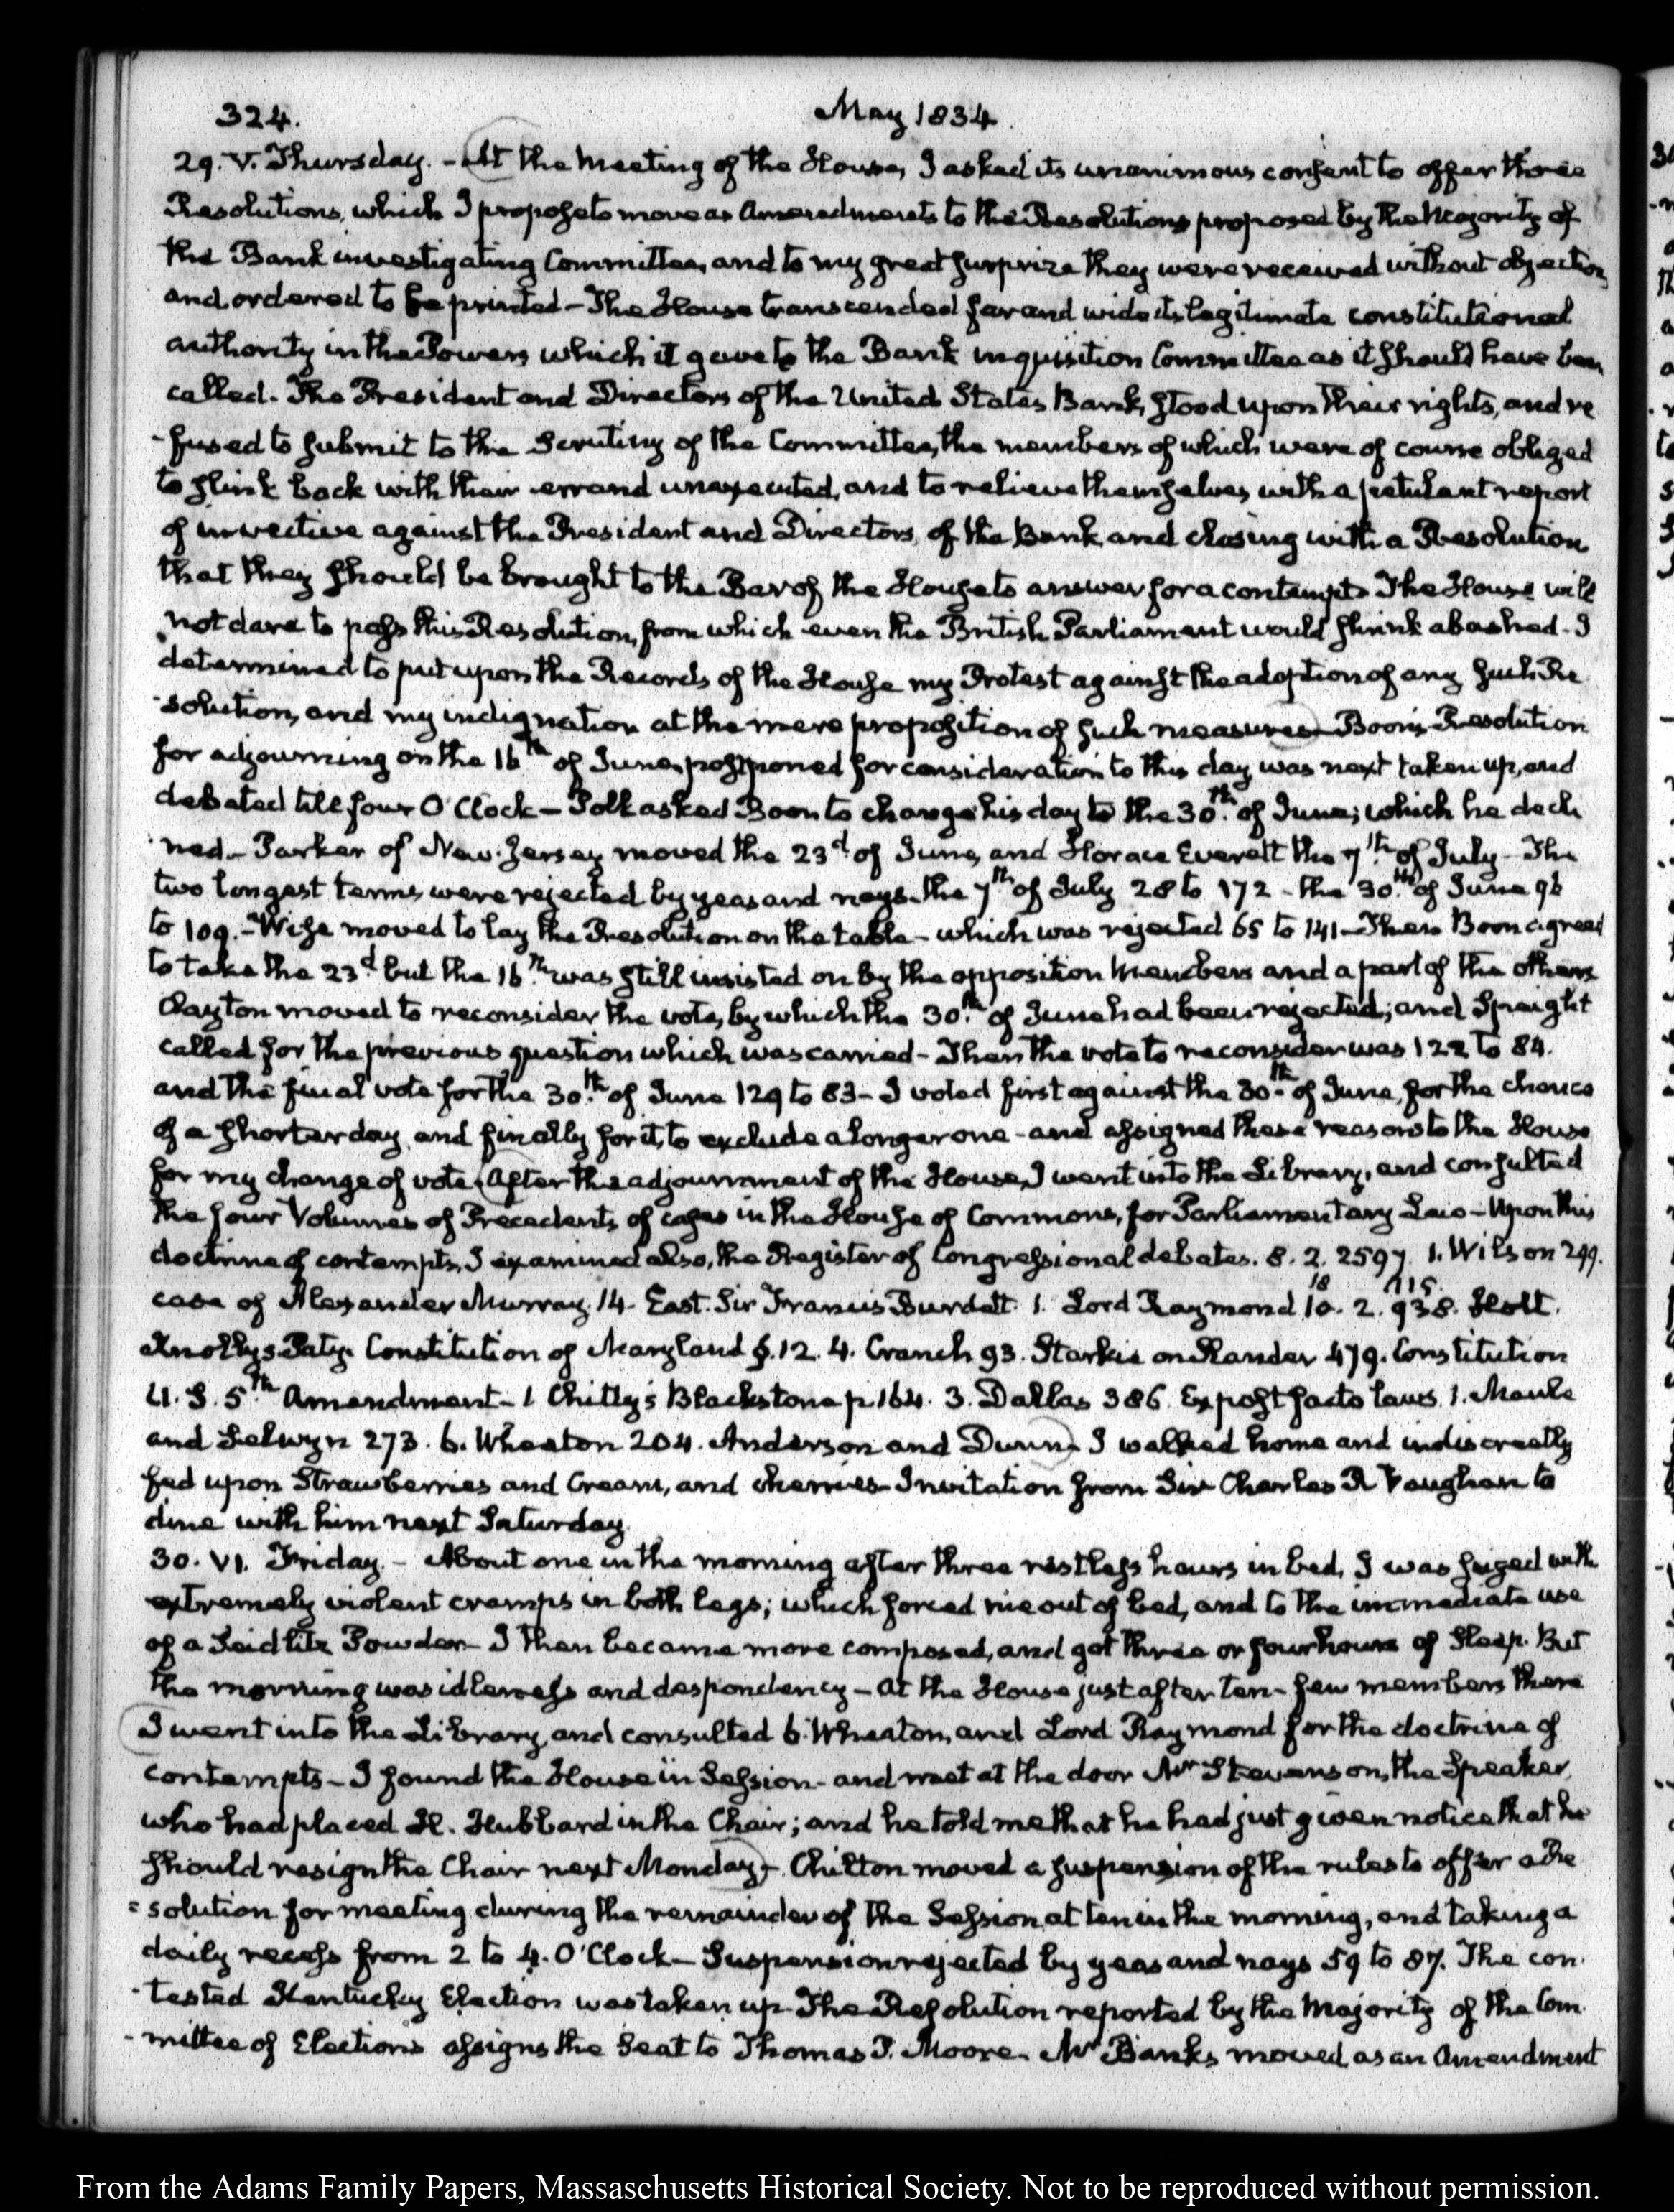 324. May 1834.
29. V. Thursday. - At the meeting of the House, I asked its unanimous consent to offer three
Resolutions, which I propose to move as Amendments to the Resolutions proposed by the Majority of
the Bank investigating Committee, and to my great surprize they were received without objection,
and ordered to be printed - The House transcended far and wide its legitimate constitutional
authority in the Powers which it gave to the Bank inquisition Committee as it should have been
called. The President and Directors of the United States Bank, stood upon their rights, and re
-fused to submit to the Scrutiny of the Committee, the members of which were of course obliged
to slink back with their errand unexecuted, and to relieve themselves with a petulant report
of invective against the President and Directors, of the Bank, and closing with a Resolution
that they should be brought to the Bar of the House to answer for a contempt. The House will
not dare to pass this Resolution, from which even the British Parliament would shrink abashed - I
determined to put upon the Records of the House my Protest against the adoption of any such Re
-solution, and my indignation at the mere proposition of such measures - Boon's Resolution
for adjourning on the 16th of June, postponed for consideration to this day was next taken up, and
debated till four O'Clock - Polk asked Boon to change his day to the 30th. of June; which he decli
-ned - Parker of New-Jersey moved the 23d of June, and Horace Everett the 7th. of July - The
two longest terms were rejected by yeas and nays. the 7th of July 28 to 172 - the 30th. of June 96
to 109. - Wise moved to lay the Resolution on the table - which was rejected 65 to 141 - Then Boon agreed
to take the 23d but the 16th. was still insisted on by the opposition Members and a part of the others
Clayton moved to reconsider the vote, by which the 30th. of June had been rejected; and Speight
called for the previous question which was carried - Then the vote to reconsider was 122 to 84.
and the final vote for the 30th. of June 129 to 83 - I voted first against the 30th. of June, for the chance
of a shorter day, and finally for it, to exclude a longer one - and assigned these reasons to the House
for my change of vote. After the adjournment of the House, I went into the Library, and consulted
the four Volumes of Precedents, of cases in the House of Commons, for Parliamentary Law - Upon this
doctrine of contempts, I examined also, the Register of Congressional debates. 8. 2. 2597. 1. Wilson 299.
case of Alexander Murray. 14. East. Sir Francis Burdett. 1. Lord Raymond 10. 18 2. 938. 1115. Holt.
Knollys. Paty. Constitution of Maryland §. 12. 4. Cranch 93. Starkie on Slander 479. Constitution
U. S. 5th. Amendment - 1 Chitty's Blackstone p. 164. 3. Dallas 386. Ex post facto laws. 1. Maule
and Selwyn 273. 6. Wheaton 204. Anderson and Dunn - I walked home and indiscreetly
fed upon Strawberries and Cream, and cherries - Invitation from Sir Charles R Vaughan to
dine with him next Saturday.
30. VI. Friday. - About one in the morning after three restless hours in bed, I was seized with
extremely violent cramps in both legs; which forced me out of bed, and to the immediate use
of a Seidlitz Powder - I then became more composed, and got three or four hours of Sleep. But
the morning was idleness and despondency - At the House just after ten - few members there
I went into the Library, and consulted 6. Wheaton, and Lord Raymond for the doctrine of
contempts - I found the House in Session - and met at the door Mr Stevenson, the Speaker,
who had placed H. Hubbard in the Chair; and he told me that he had just given notice that he
should resign the Chair next Monday - Chilton moved a suspension of the rules to offer a Re
=solution for meeting during the remainder of the Session at ten in the morning, and taking a
daily recess from 2 to 4. O'Clock - Suspension rejected by yeas and nays 59 to 87. The con
-tested Kentucky Election was taken up - The Resolution reported by the Majority of the Com
-mittee of Elections assigns the Seat to Thomas P. Moore. Mr Banks moved, as an Amendment
From the Adams Family Papers, Massachusetts Historical Society. Not to be reproduced without permission.